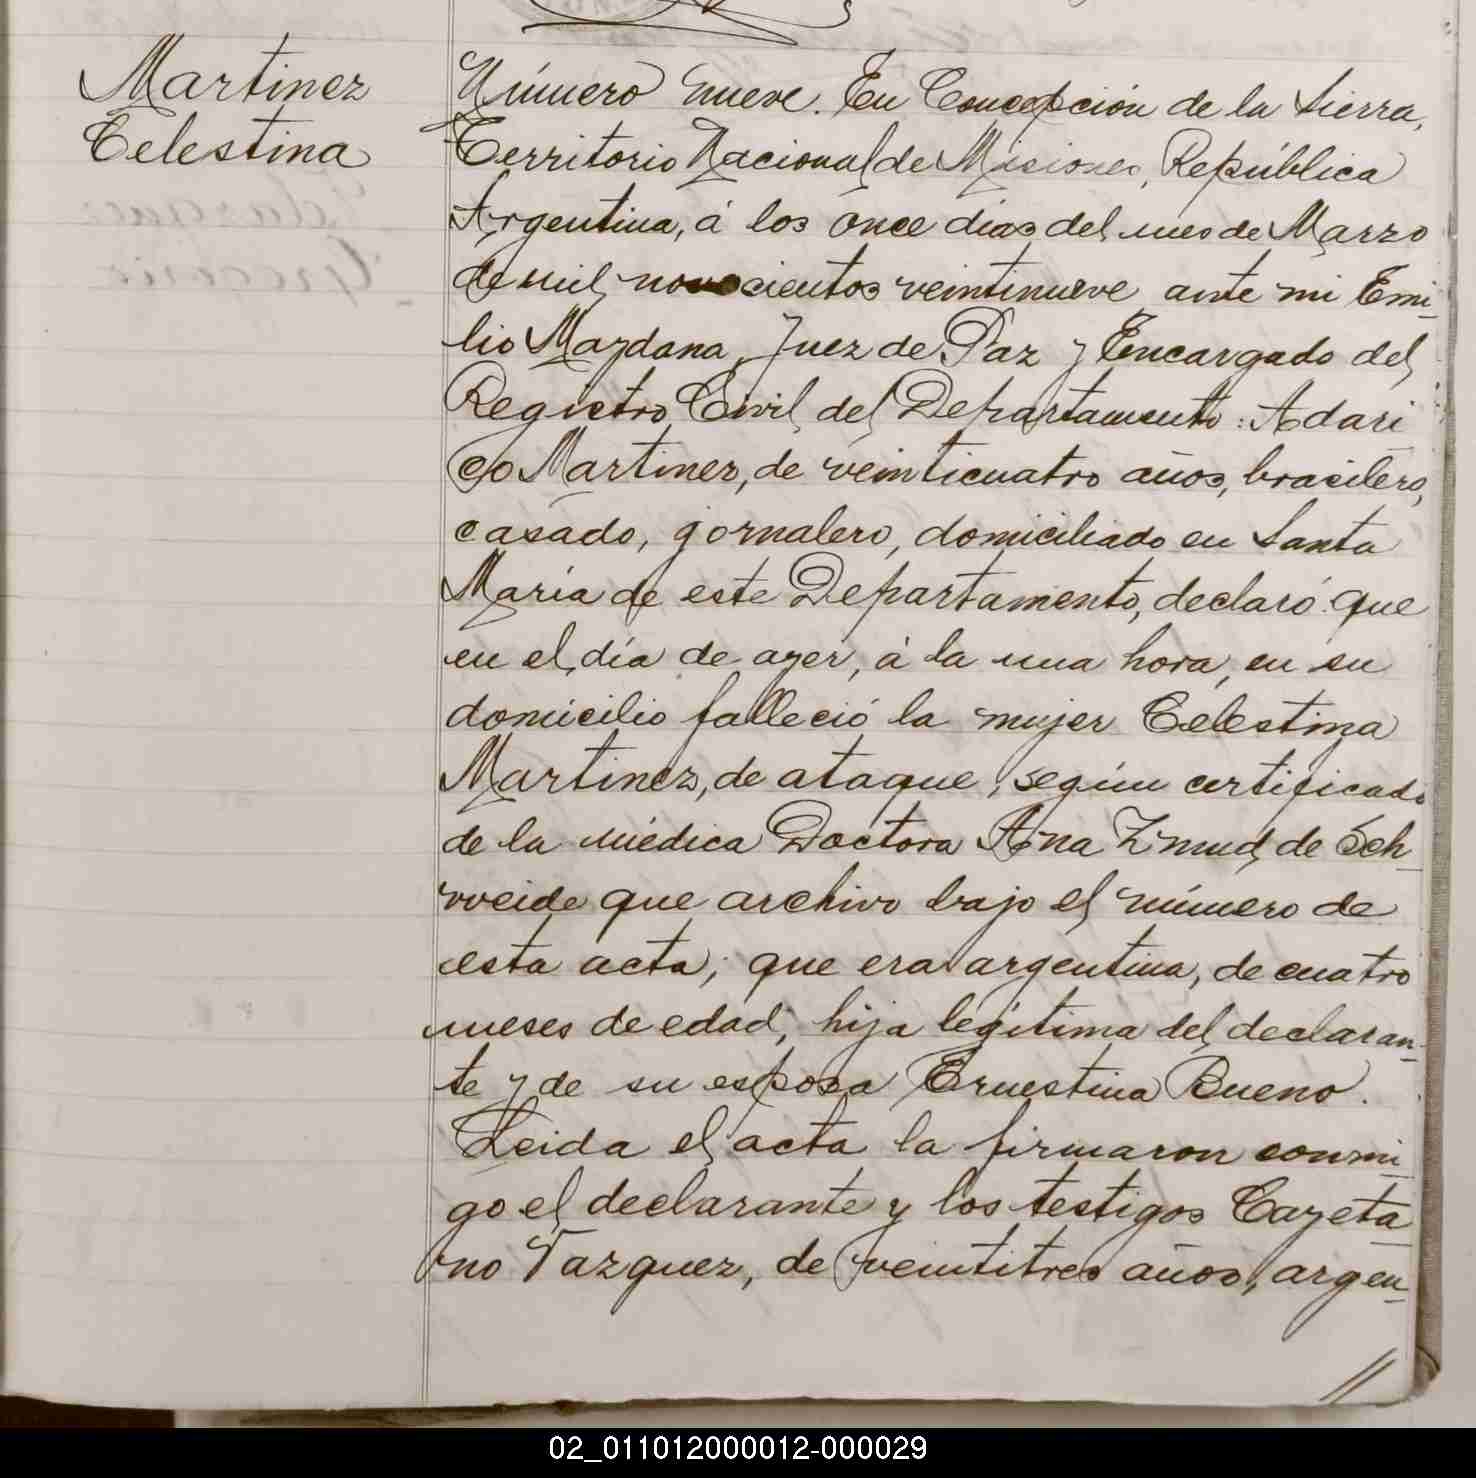 Martinez
Celestina
Número nueve. En Concepción de la Sierra,
Territorio Nacional de Misiones, República
Argentina, á los once dias del mes de Marzo
de mil novecientos veintinueve ante mi Emi-
lio Maydana, Juez de Paz y Encargado del
Registro Civil del Departamento: Adari
co Martinez, de veinticuatro años, brasilero,
casado, jornalero, domiciliado en Santa
María de este Departamento, declaró: que
en el día de ayer, á la una hora, en su
domicilio falleció la mujer Celestina
Martinez, de ataque, según certificado
de la médica Doctora Ana Zmud de Sch-
roeide que archivo bajo el número de
esta acta; que era argentina, de cuatro
meses de edad; hija legítima del declaran-
te y de su esposa Ernestina Bueno.
Leida el acta la firmaron conmi-
go el declarante y los testigos Cayeta-
no Vazquez, de veintitres años, argen-
02_011012000012-000029